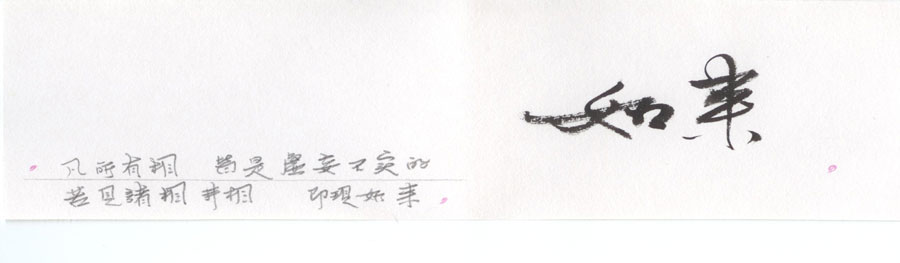 如来
凡所有相 皆是虚妄不实的
若见諸相非相 即現如来